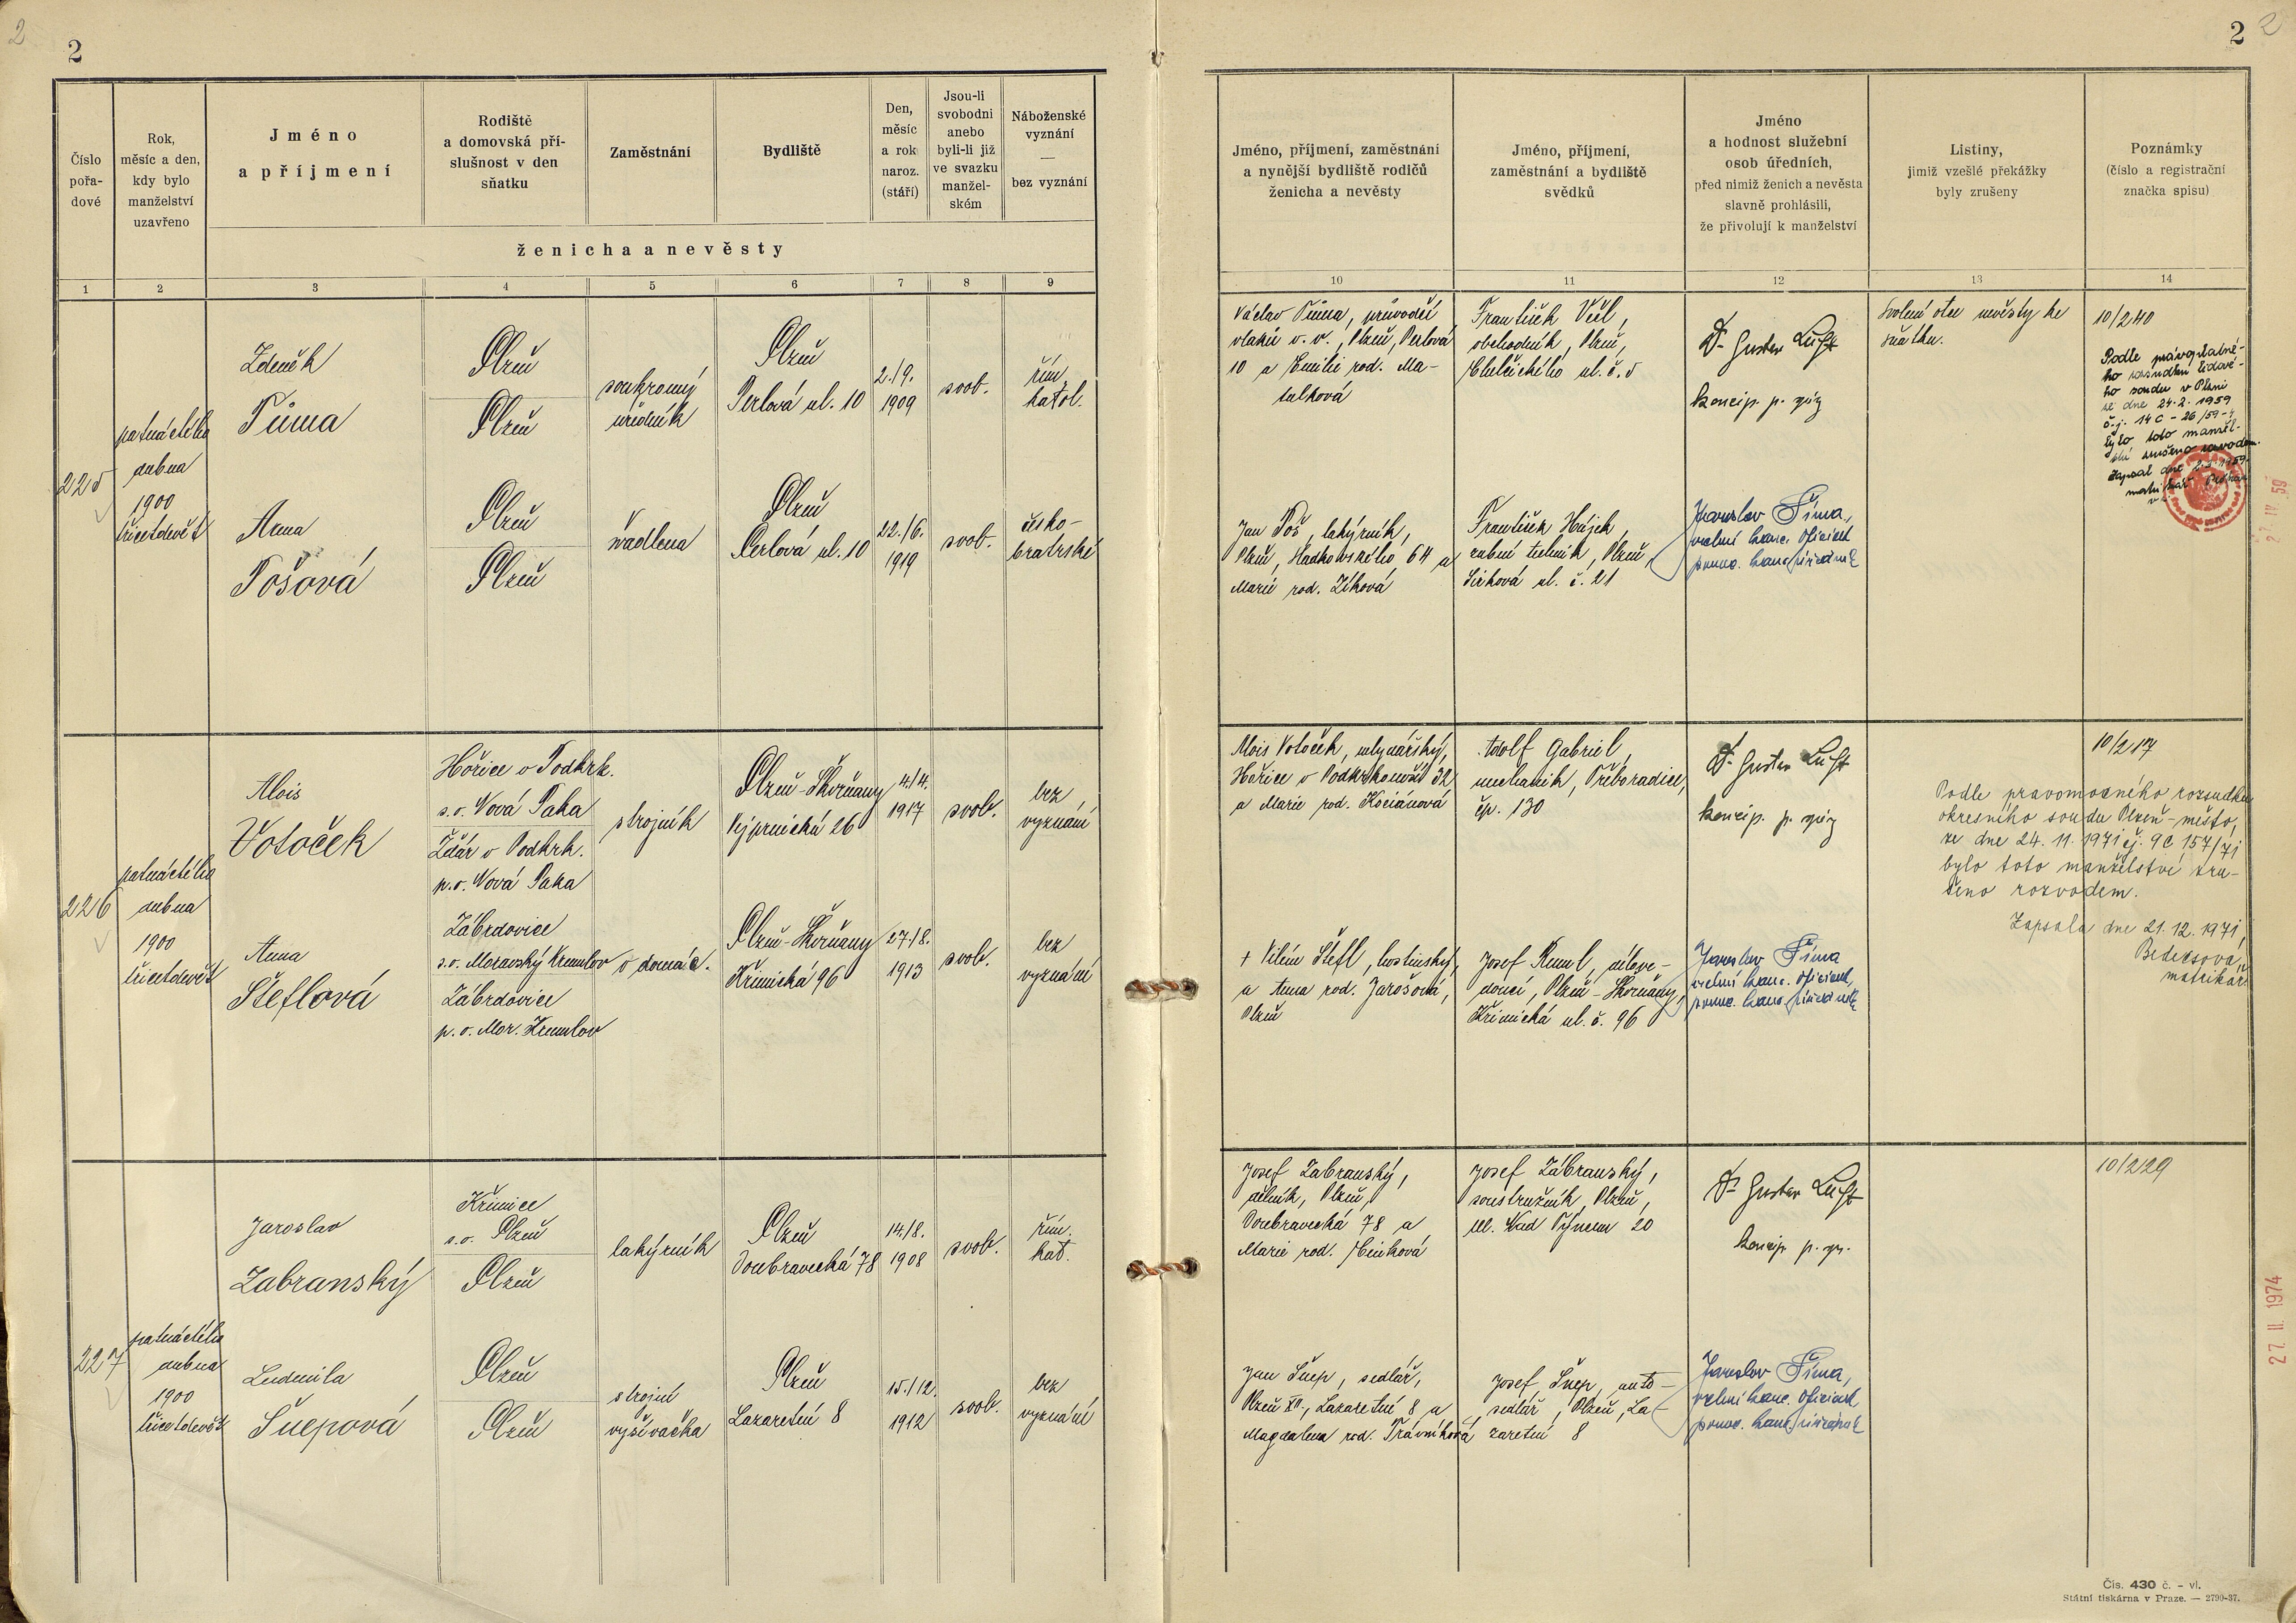 2
2
2
2
Číslo
pořa-
dové
Rok,
měsíc a den,
kdy bylo
manželství
uzavřeno
Jméno
a příjmení
Rodiště
a domovská pří-
slušnost v den
sňatku
Zaměstnání
Bydliště
Den,
měsíc
a rok
naroz.
(stáří)
Jsou-li
svobodni
anebo
byli-li již
ve svazku
manžel-
ském
Náboženské
vyznání
—
bez vyznání
ženicha a nevěsty
1 2 3 4 5 6 7 8 9
Jméno, příjmení, zaměstnání
a nynější bydliště rodičů
ženicha a nevěsty
Jméno, příjmení,
zaměstnání a bydliště
svědků
Jméno
a hodnost služební
osob úředních,
před nimiž ženich a nevěsta
slavně prohlásili,
že přivolují k manželství
Listiny,
jimiž vzešlé překážky
byly zrušeny
Poznámky
(číslo a registrační
značka spisu)
10 11 12 13 14
225
patnáctého
dubna
1900
třicetdevět
Zdeněk
Tůma
Plzeň
Plzeň
soukromý
úředník
Plzeň
Perlová ul. 10
2./9.
1909
svob.
řím.
katol.
Anna
Tošová
Plzeň
Plzeň
švadlena
Plzeň
Perlová ul. 10
22./6.
1919
svob.
česko-
bratrské
Václav Tůma, průvodčí
vlaků v. v., Plzeň, Perlová
10 a Emilie rod. Ma-
tulková
František
obchodník, Plzeň,
Chelčického ul. č. 5
Dr Gustav Luft
koncip. p.
Svolení otce nevěsty ke
sňatku.
10/240
Podle právoplatné-
ho rozsudku lidové-
ho soudu v Plzni
ze dne 24. 2. 1959
č. j. 14 C - 26/59-4
bylo toto manžel-
ství zrušeno rozvodem.
Zapsal dne
matrikář
27 IV 59
Jan Toš, lakýrník,
Plzeň, Hladkovského 64 a
Marie rod. Zíková
František Hájek,
zubní technik, Plzeň,
Sirková ul. č. 21
Jaroslav Šíma,
vrchní kanc. oficiant
pomoc. kanc. úředník
226
patnáctého
dubna
1900
třicetdevět
Alois
Votoček
Hořice v Podkrk.
s. o. Nová Paka
Ždár v Podkrk.
p. o. Nová Paka
strojník
Plzeň-Skvrňany
Vejprnická 26
4./4.
1917
svob.
bez
vyznání
Anna
Šteflová
Zábrdovice
s. o. Moravský Krumlov
Zábrdovice
p. o. Mor. Krumlov
v domác.
Plzeň-Skvrňany
Křimická 96
27./8.
1913
svob.
bez
vyznání
Alois Votoček, mlynářský,
Hořice v Podkrkonoší 32
a Marie rod. Kociánová
Adolf Gabriel,
mechanik, Třeboradice,
čp. 130
Dr Gustav Luft
koncip. p.
10/217
Podle pravomocného rozsudku
okresního soudu Plzeň-město,
ze dne 24. 11. 1971 čj. 9C 157/71
bylo toto manželství zru-
šeno rozvodem.
Zapsala dne 21. 12. 1971,
matrikář
+ Vilém Štefl, hostinský,
a Anna rod. Jarošová,
Plzeň
Josef
Plzeň-Skvrňany,
Křimická ul. č. 96
Jaroslav Šíma
vrchní kanc. oficiant,
pomoc. kanc. úředník
227
patnáctého
dubna
1900
třicetdevět
Jaroslav
Zabranský
Křimice
s. o. Plzeň
Plzeň
lakýrník
Plzeň
Doubravecká 78
14./8.
1908
svob.
řím.
kat.
Ludmila
Šnepová
Plzeň
Plzeň
strojní
vyšívačka
Plzeň
Lazaretní 8
15./12.
1912
svob.
bez
vyznání
Josef Zabranský,
dělník, Plzeň,
Doubravecká 78 a
Marie rod.
Josef Zábranský,
soustružník, Plzeň,
ul. Nad Týncem 20
Dr Gustav Luft
koncip. p.
10/229
Jan Šnep, sedlář,
Plzeň XII., Lazaretní 8 a
Magdalena rod. Trávníková
Josef Šnep, auto-
sedlář, Plzeň, La-
zaretní 8
Jaroslav Šíma,
vrchní kanc. oficiant
pomoc. kanc. úředník
27. II. 1974
Čís. 430 č. - vl.
Státní tiskárna v Praze. — 2790-37.